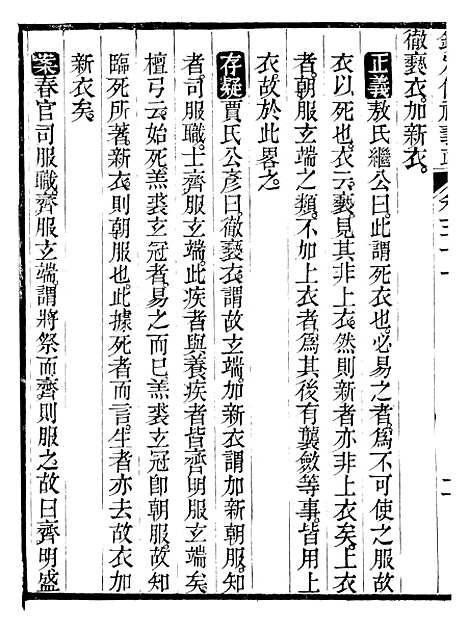 徹褻衣。加新衣。
正義敖氏繼公曰。此謂死衣也。必易之者。爲不可使之服故
衣以死也。衣云褻。見其非上衣。然則新者亦非上衣矣。上衣
者。朝服玄端之類。不加上衣者。爲其後有襲斂等事。皆用上
衣。故於此畧之。
存疑賈氏公彥曰。徹褻衣。謂故玄端。加新衣。謂加新朝服。知
者。司服職。士齊服玄端。此疾者與養疾者皆齊。明服玄端矣。
檀弓云。始死。羔裘玄冠者。易之而已。羔裘玄冠卽朝服。故知
臨死所著新衣。則朝服也。此據死者而言。生者亦去故衣加
新衣矣。
案春官司服職。齊服玄端。謂將祭而齊則服之。故曰齊明盛